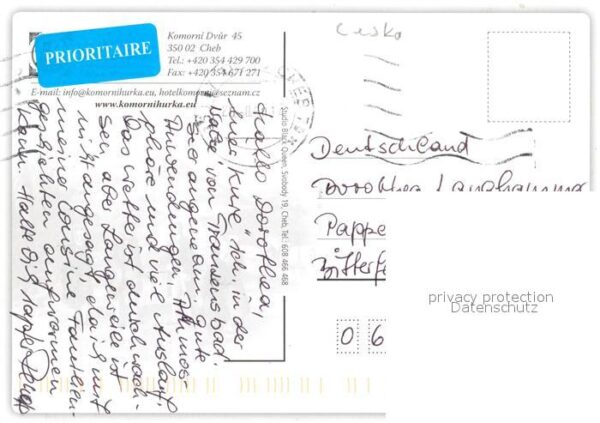 PRIORITAIRE
Komorní Dvůr 45
350 02 Cheb
Tel.: +420 354 429 700
Fax: +420 354 671 271
E-mail: info@komornihurka.eu, hotelkomorni@seznam.cz
www.komornihurka.eu
Cesko
Studio Black Queen, Svobody 19, Cheb, Tel.: 608 466 468
Hallo Dorothea,
"Kur" Ich in der
Nähe von Franzensbad.
Sehr angenehm. Gute
Anwendungen. Atmos-
phäre und viel Auslauf.
Das Wetter ist durchwach-
sen, aber Langeweile ist
nicht angesagt, da ich mit
meine Cousine Familien-
geschichten aufwärmen
kann. Halte Dich tapfer
Deutschland
Dorothea
Pappe
Bitterfe
0 6
privacy protection
Datenschutz